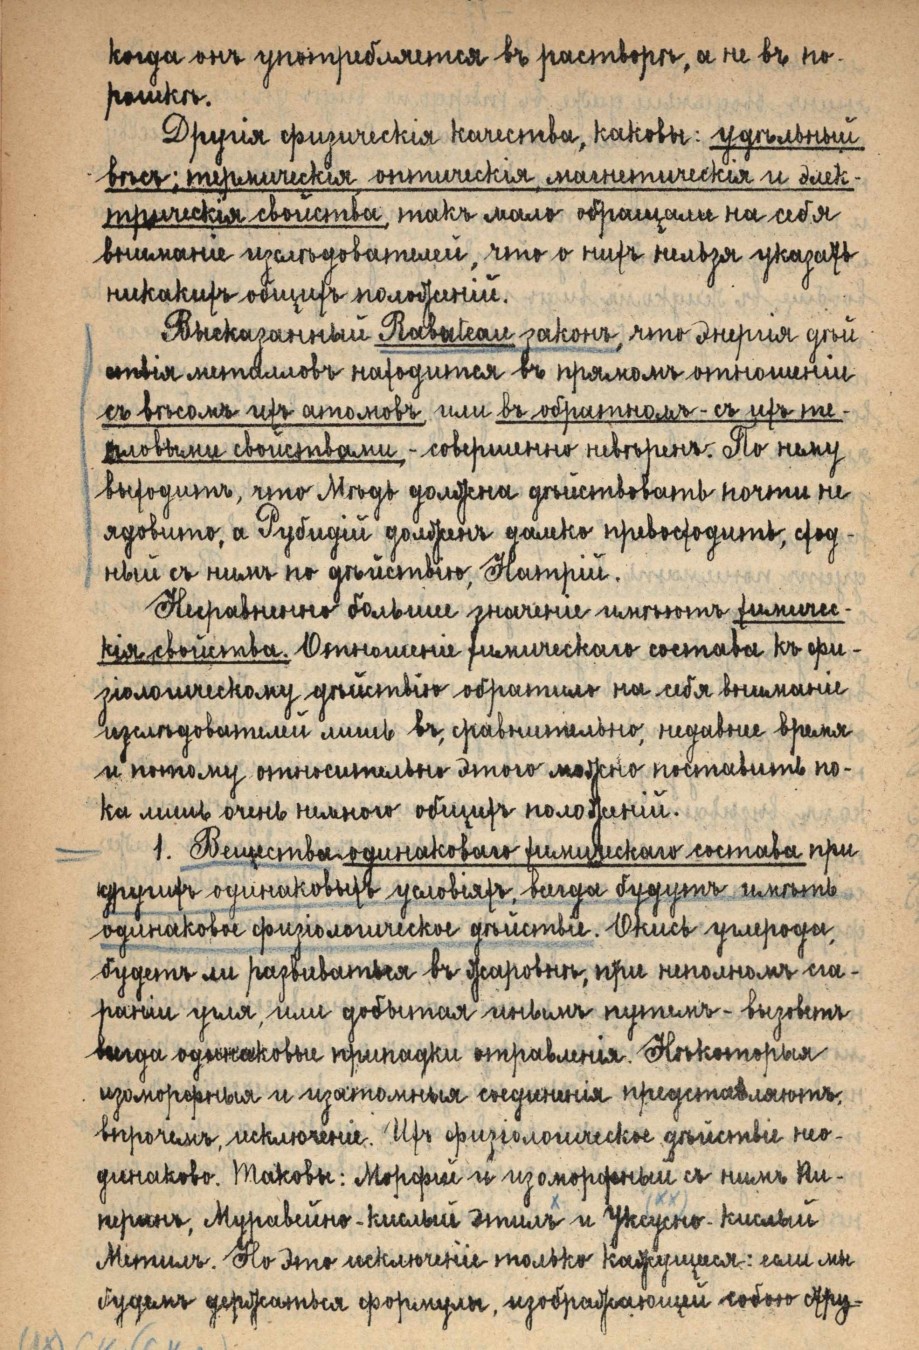 когда онъ употребляется въ растворѣ, а не въ по-
рошкѣ.
Другія физическія качества, каковы: удѣльный
вѣсъ; термическія, оптическія, магнетическія и элек-
трическія свойства, такъ мало обращали на себя
вниманіе изслѣдователей, что о нихъ нельзя указать
никакихъ общихъ положеній.
Высказанный Rabuteau законъ, что энергія дѣй
ствія металловъ находится въ прямомъ отношеніи
съ вѣсомъ ихъ атомовъ, или въ обратномъ - съ ихъ те-
пловыми свойствами, - совершенно невѣренъ. По нему
выходитъ, что Мѣдь должна дѣйствовать почти не
ядовито, а Рубидій долженъ далеко превосходить, сход-
ный съ нимъ по дѣйствію, Натрій.
Несравненно большее значеніе имѣютъ химичес-
кія свойства. Отношеніе химическаго состава къ фи-
зіологическому дѣйствію обратило на себя вниманіе
изслѣдователей лишь въ, сравнительно, недавнее время
и потому относительно этого можно поставить по-
ка лишь очень немного общихъ положеній.
1. Вещества одинаковаго химическаго состава при
другихъ одинаковыхъ условіяхъ, всегда будутъ имѣть
одинаковое физіологическое дѣйствіе. Окись углерода,
будетъ ли развиваться въ жаровнѣ, при неполномъ сга-
раніи угля, или добытая инымъ путемъ - вызоветъ
всегда одинаковые припадки отравленія. Нѣкоторыя
изоморфныя и изатомныя соединенія представляютъ,
впрочемъ, исключеніе. Ихъ физіологическое дѣйствіе нео-
динаково. Таковы: Морфій и изоморфный съ нимъ Пи-
перинъ, Муравейно-кислый Этилъ и Уксусно-кислый
Метилъ. Но это исключеніе только кажущееся: если мы
будемъ держаться формулы, изображающей собою